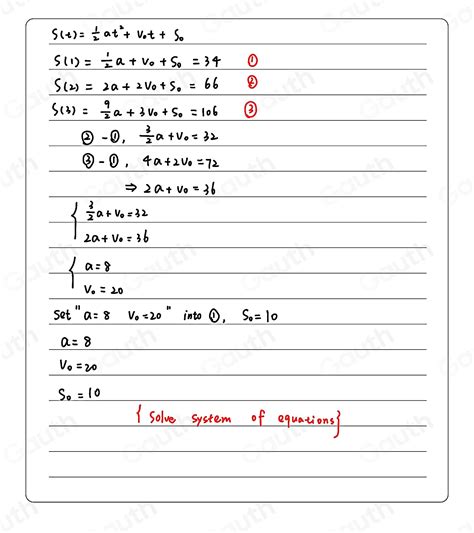 S(t) = 1/2 at² + V₀t + S₀
S(1) = 1/2 a + V₀ + S₀ = 34 ①
S(2) = 2a + 2V₀ + S₀ = 66 ②
S(3) = 9/2 a + 3V₀ + S₀ = 106 ③
② - ①, 3/2 a + V₀ = 32
③ - ①, 4a + 2V₀ = 72
⇒ 2a + V₀ = 36
{ 3/2 a + V₀ = 32
2a + V₀ = 36
{ a = 8
V₀ = 20
Set "a = 8 V₀ = 20" into ①, S₀ = 10
a = 8
V₀ = 20
S₀ = 10
{ Solve system of equations}